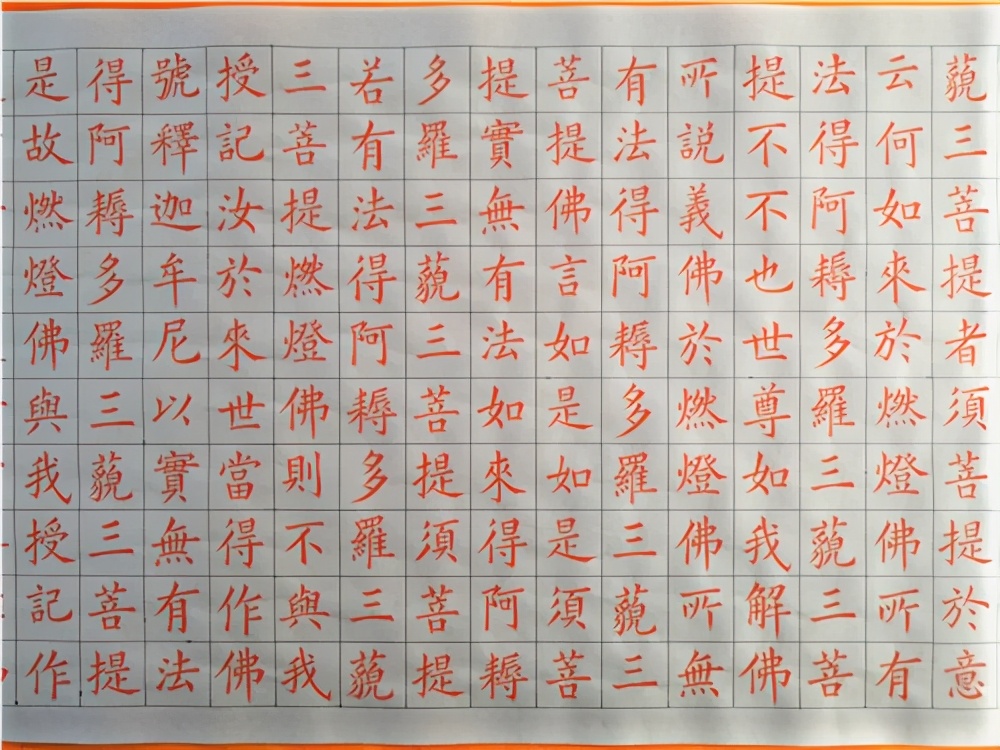 藐三菩提者須菩提於意
云何如來於燃燈佛所有
法得阿耨多羅三藐三菩
提不不也世尊如我解佛
所說義佛於燃燈佛所無
有法得阿耨多羅三藐三
菩提佛言如是如是須菩
提實無有法如來得阿耨
多羅三藐三菩提須菩提
若有法得阿耨多羅三藐
三菩提燃燈佛則不與我
授記汝於來世當得作佛
號釋迦牟尼以實無有法
得阿耨多羅三藐三菩提
是故燃燈佛與我授記作